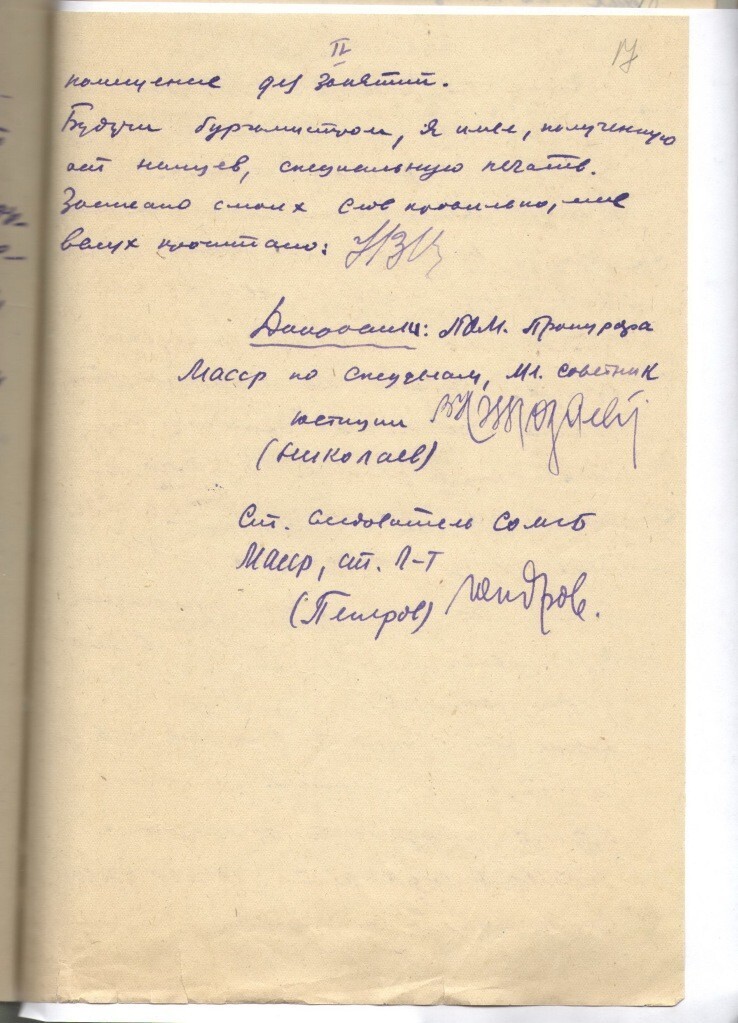 II
17
помещение для занятий.
Будучи бургомистром, я имел, полученную
от немцев, специальную печать.
Записано с моих слов правильно, мне
вслух прочитано:
Допросили: Пом. Прокурора
Масср по спецделам, мл. советник
юстиции
(Николаев)
Ст. следователь СО МГБ
Масср, ст. л-т
(Петров)